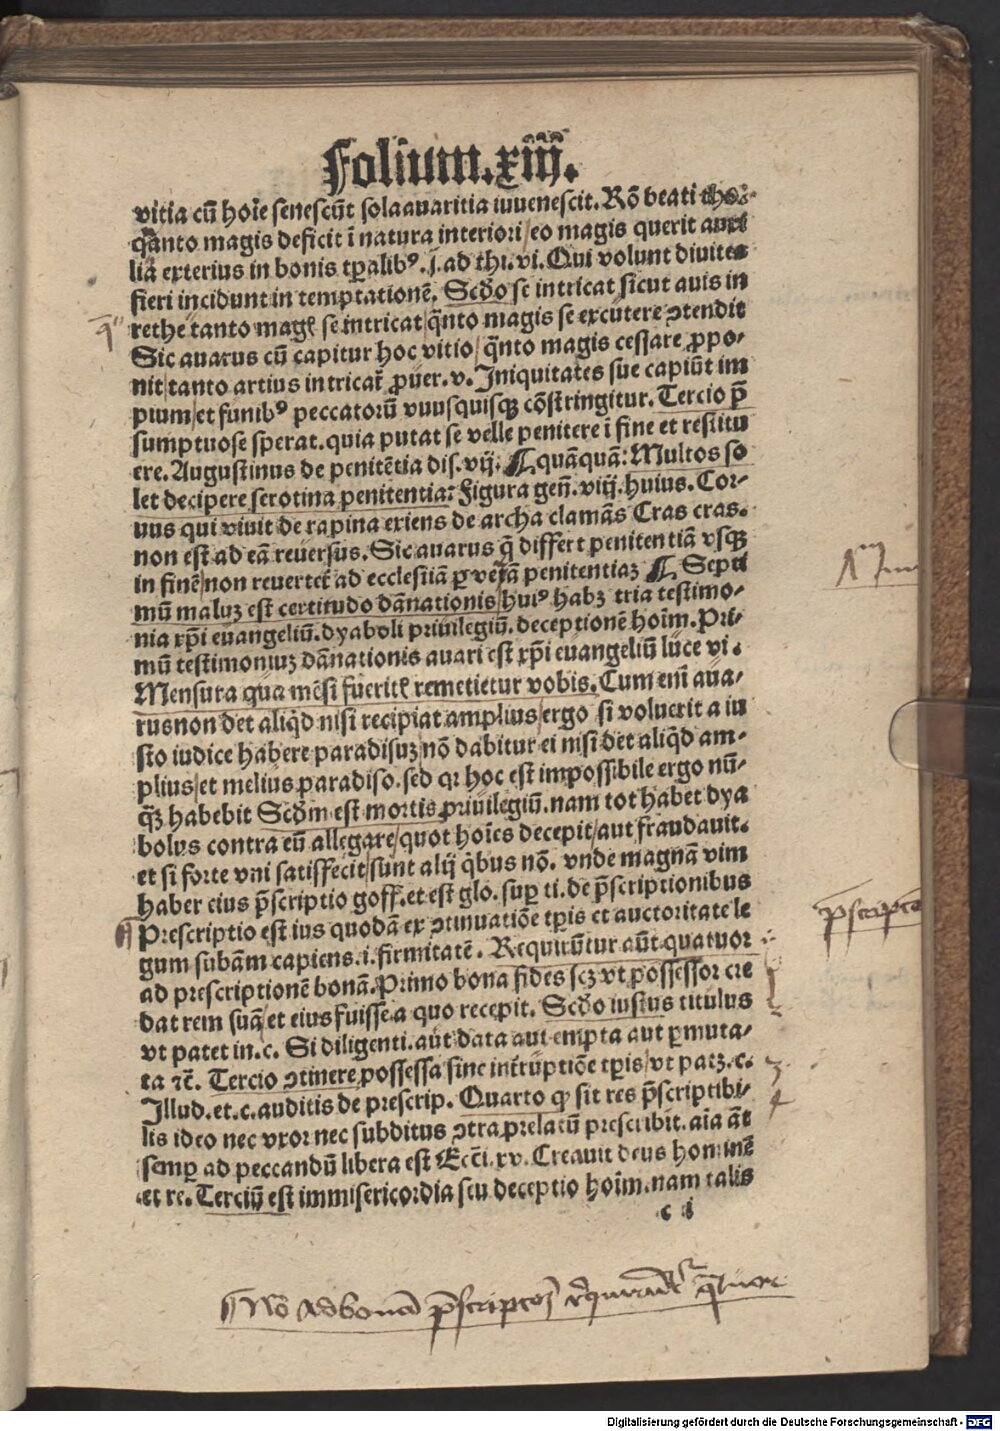 Folium.xiiij.
vitia cū hoīe senescūt sola auaritia iuuenescit. Rō beati tho:
q̄anto magis deficit ī natura interiori/eo magis querit auxi
lia exterius in bonis tꝑalibꝰ. j. ad thi. vi. Qui volunt diuites
fieri incidunt in temptationē. Scd̄o se intricat sicut auis in
rethe tanto magꝭ se intricat/q̄nto magis se excutere ꝯtendit
Sic auarus cū capitur hoc vitio/q̄nto magis cessare ꝓpo-
nit/tanto artius intricat̄ ꝓuer. v. Iniquitates sue capiūt im
pium/et funibꝰ peccatorū vnusquisqꝫ cōstringitur. Tercio p̄
sumptuose sperat. quia putat se velle penitere ī fine et restitu
ere. Augustinus de penitētia dis. vij. ¶ quāquā: Multos so
let decipere serotina penitentia: Figura geñ. viij. huius. Cor-
uus qui viuit de rapina exiens de archa clamās Cras cras.
non est ad eā reuersus. Sic auarus q̄ differt penitentiā vsqꝫ
in finē/non reuertet̄ ad ecclesiā ꝑ verā penitentiaꝫ ¶ Septi
mū maluꝫ est certitudo dānationis/huiꝰ habꝫ tria testimo-
nia xp̄i euangeliū. dyaboli priuilegiū. deceptionē hoīm. Pri-
mū testimoniuꝫ dānationis auari est xp̄i euangeliū luce vi.
Mensura qua mēsi fueritꝭ remetietur vobis. Cum eni̅ aua-
rus non det aliqd̄ nisi recipiat amplius/ergo si voluerit a iu
sto iudice habere paradisuꝫ/nō dabitur ei nisi det aliqd̄ am-
plius/et melius paradiso. sed qꝛ hoc est impossibile ergo nū-
q̄ꝫ habebit Scd̄m est mortis priuilegiū. nam tot habet dya
bolus contra eū allegare/quot hoīes decepit/aut fraudauit.
et si forte vni satisfecit/sunt alij q̄bus nō. vnde magnā vim
haber eius p̄scriptio goff. et est glo. suꝑ ti. de p̄scriptionibus
Prescriptio est ius quodā ex ꝯtinuatiōe tꝑis et auctoritate le
gum subām capiens. i. firmitatē. Requirūtur aūt quatuor
ad prescriptionē bonā. Primo bona fides scꝫ vt possessor cre
dat rem suā/et eius fuisse a quo recepit. Scd̄o iustus titulus
vt patet in. c. Si diligenti. aut data aut empta aut ꝑmuta-
ta ⁊c̄. Tercio ꝯtinere possessa sine int̄ruptiōe tꝑis/vt patꝫ. c.
Illud. et. c. auditis de prescrip. Quarto ꝙ sit res p̄scriptibi-
lis ideo nec vxor nec subditus ꝯtra prelatū prescribit. aīa āt
semꝑ ad peccandū libera est Ecc̄i. xv. Creauit deus hominē
et re. Terciū est immisericordia seu deceptio hoīm. nam talis
c i
p̄scriptio
¶ Nō Ad bonā p̄scriptōꝫ req̄runt̄ q̄tuor
Digitalisierung gefördert durch die Deutsche Forschungsgemeinschaft - DFG